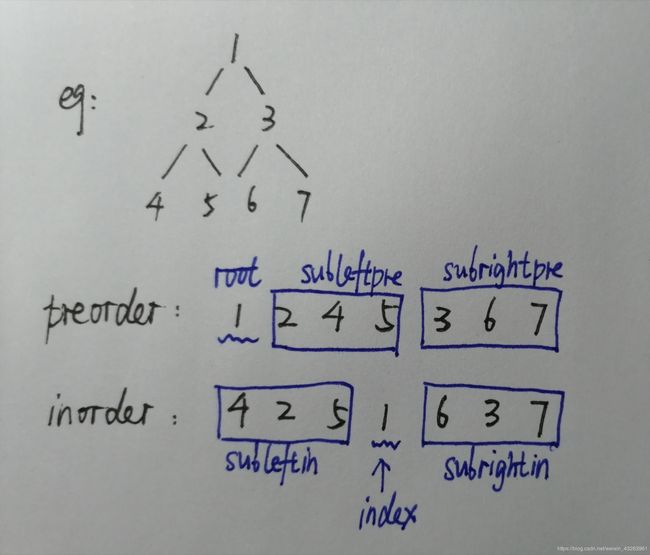 eg:
1
2 3
4 5 6 7
root subleftpre subrightpre
preorder: 1 2 4 5 3 6 7
inorder: 4 2 5 1 6 3 7
subleftin subrightin
index